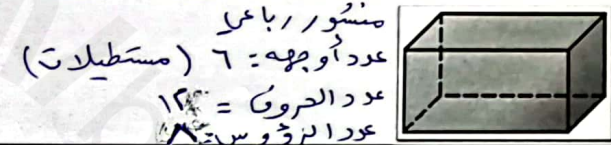 منشور رباعي
عدد أوجهه: ٦ (مستطيلات)
عدد الحروف = ١٢
عدد الرؤوس: ٨